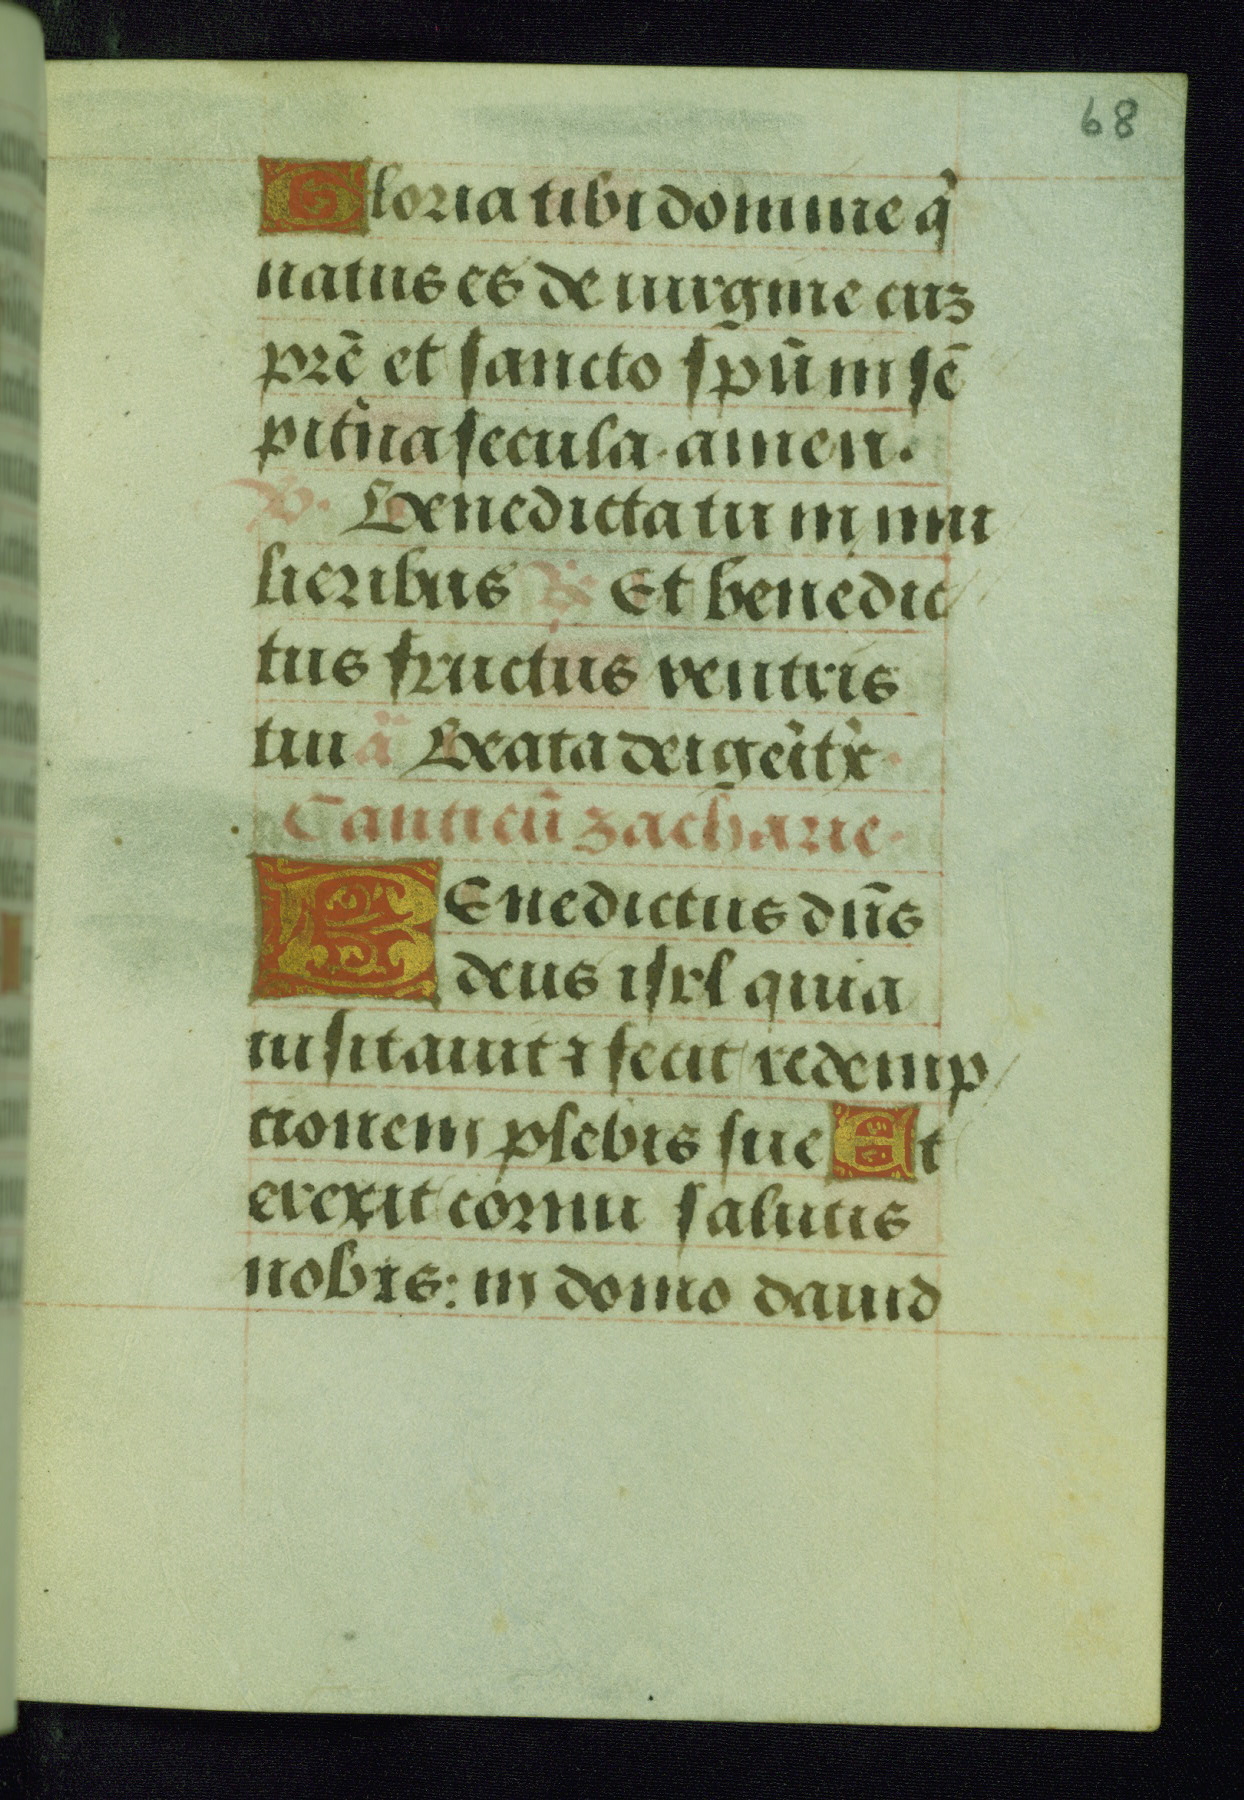 68
Gloria tibi domine q̇
natus es de uirgine cuȝ
prē et sancto sp̄ū in sē
pit̓na secula. amen.
℣. Benedicta tu in mu
lieribus ℟ Et benedic
tus fructus ventris
tui ā Beata dei geītx̓.
Canticū zacharie.
BEnedictus dn̄s
deus isrl quia
uisitauit ⁊ fecit redemp
cionem plebis sue Et
erexit cornu salutis
nobis: in domo dauid